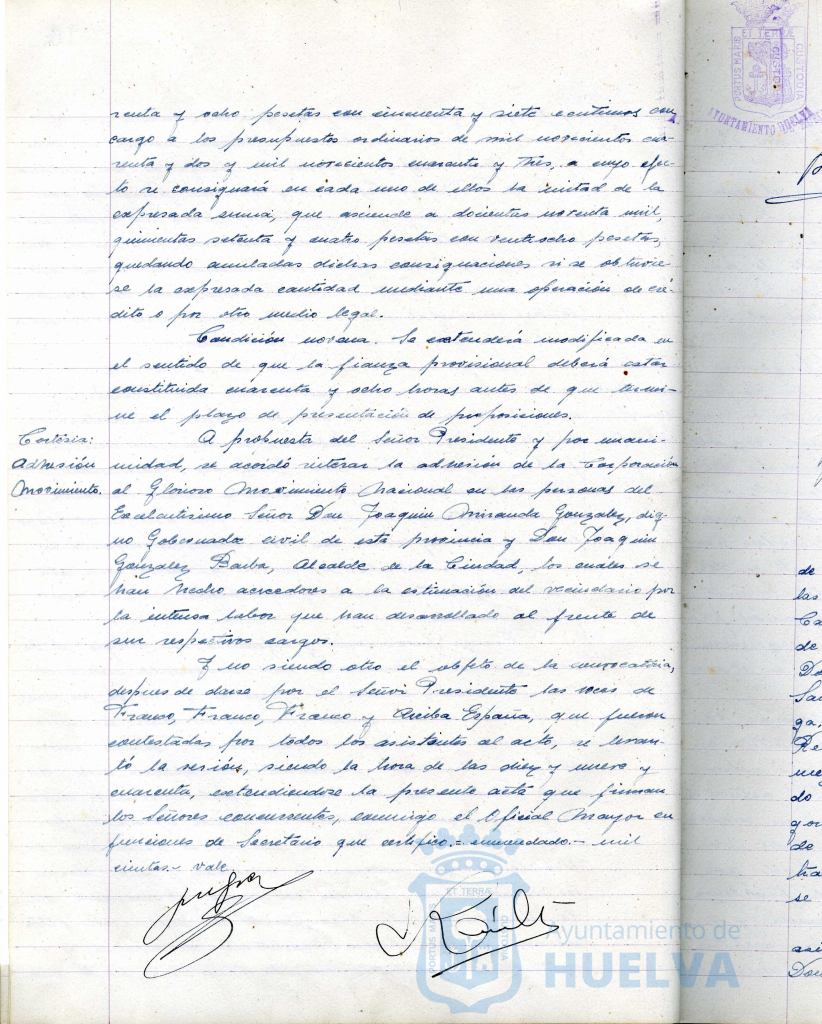 renta y ocho pesetas con cincuenta y siete centimos con
cargo a los presupuestos ordinarios de mil novecientos cua-
renta y dos y mil novecientos cuarenta y tres, a cuyo efec-
to se consignará en cada uno de ellos la mitad de la
expresada suma, que asciende a docientas noventa mil,
quinientas setenta y cuatro pesetas con ventiocho pesetas,
quedando anuladas dichas consignaciones si se obtuvie-
se la expresada cantidad mediante una operación de cré-
dito o por otro medio legal.
Condición novena. Se entenderá modificada en
el sentido de que la fianza provisional deberá estar
constituida cuarenta y ocho horas antes de que termi-
ne el plazo de presentación de proposiciones.
Cortésia:
Adhesión
Movimiento.
A propuesta del Señor Presidente y por unani-
midad, se acordó reiterar la adhesión de la Corporación
al Glorioso Movimiento Nacional en las personas del
Excelentisimo Señor Don Joaquin Miranda Gonzalez, dig-
no Gobernador civil de esta provincia y Don Joaquin
Gonzalez Barba, Alcalde de la Ciudad, los cuáles se
han hecho acreedores a la estimación del vecindario por
la intensa labor que han desarrollado al frente de
sus respectivos cargos.
Y no siendo otro el objeto de la convocatoria,
despues de darse por el Señor Presidente las voces de
Franco, Franco, Franco y Arriba España, que fueron
contestadas por todos los asistentes al acto, se levan-
tó la sesión, siendo la hora de las diez y nueve y
cuarenta, extendiendose la presente acta que firman
los Señores concurrentes, conmigo el Oficial Mayor en
funciones de Secretario que certifico.= enmendado.- mil
cientas.- vale
PORTUS MARIS ET TERRÆ CUSTODIA
AYUNTAMIENTO HUELVA
de
las
de
ga,
do
de
se
PORTUS MARIS ET TERRÆ CUSTODIA
Ayuntamiento de
HUELVA